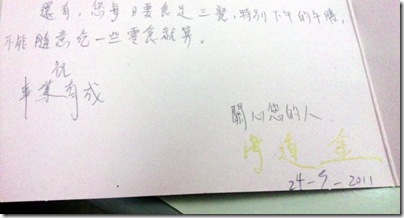 還有，您每日要食足三餐，特別下午的午膳，
不能隨意吃一些零食就算。
祝
事業有成
關心您的人
24-9-2011